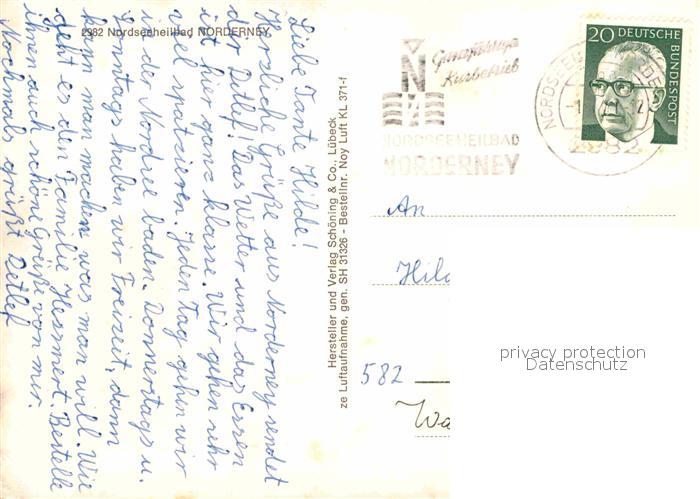 2982 Nordseeheilbad NORDERNEY
Liebe Tante Hilde!
Herzliche Grüße aus Norderney sendet
der Detlef! Das Wetter und das Essen
ist hier ganz klasse. Wir gehen sehr
viel spatzieren. Jeden Tag gehen wir
in der Nordsee baden. Donnerstags u.
Sonntags haben wir Freizeit, dann
kann man machen was man will. Wie
geht es den Familie Hesmert. Bestelle
ihnen auch schöne Grüße von mir.
Nochmals grüßt Detlef
Hersteller und Verlag Schöning & Co., Lübeck
ze Luftaufnahme, gen. SH 31326 - Bestellnr. Noy Luft KL 371-f
Ganzjährige
Kurbetrieb
N
NORDSEEHEILBAD
NORDERNEY
2982
20 DEUTSCHE BUNDESPOST
An
Hild
582
Wa
privacy protection
Datenschutz